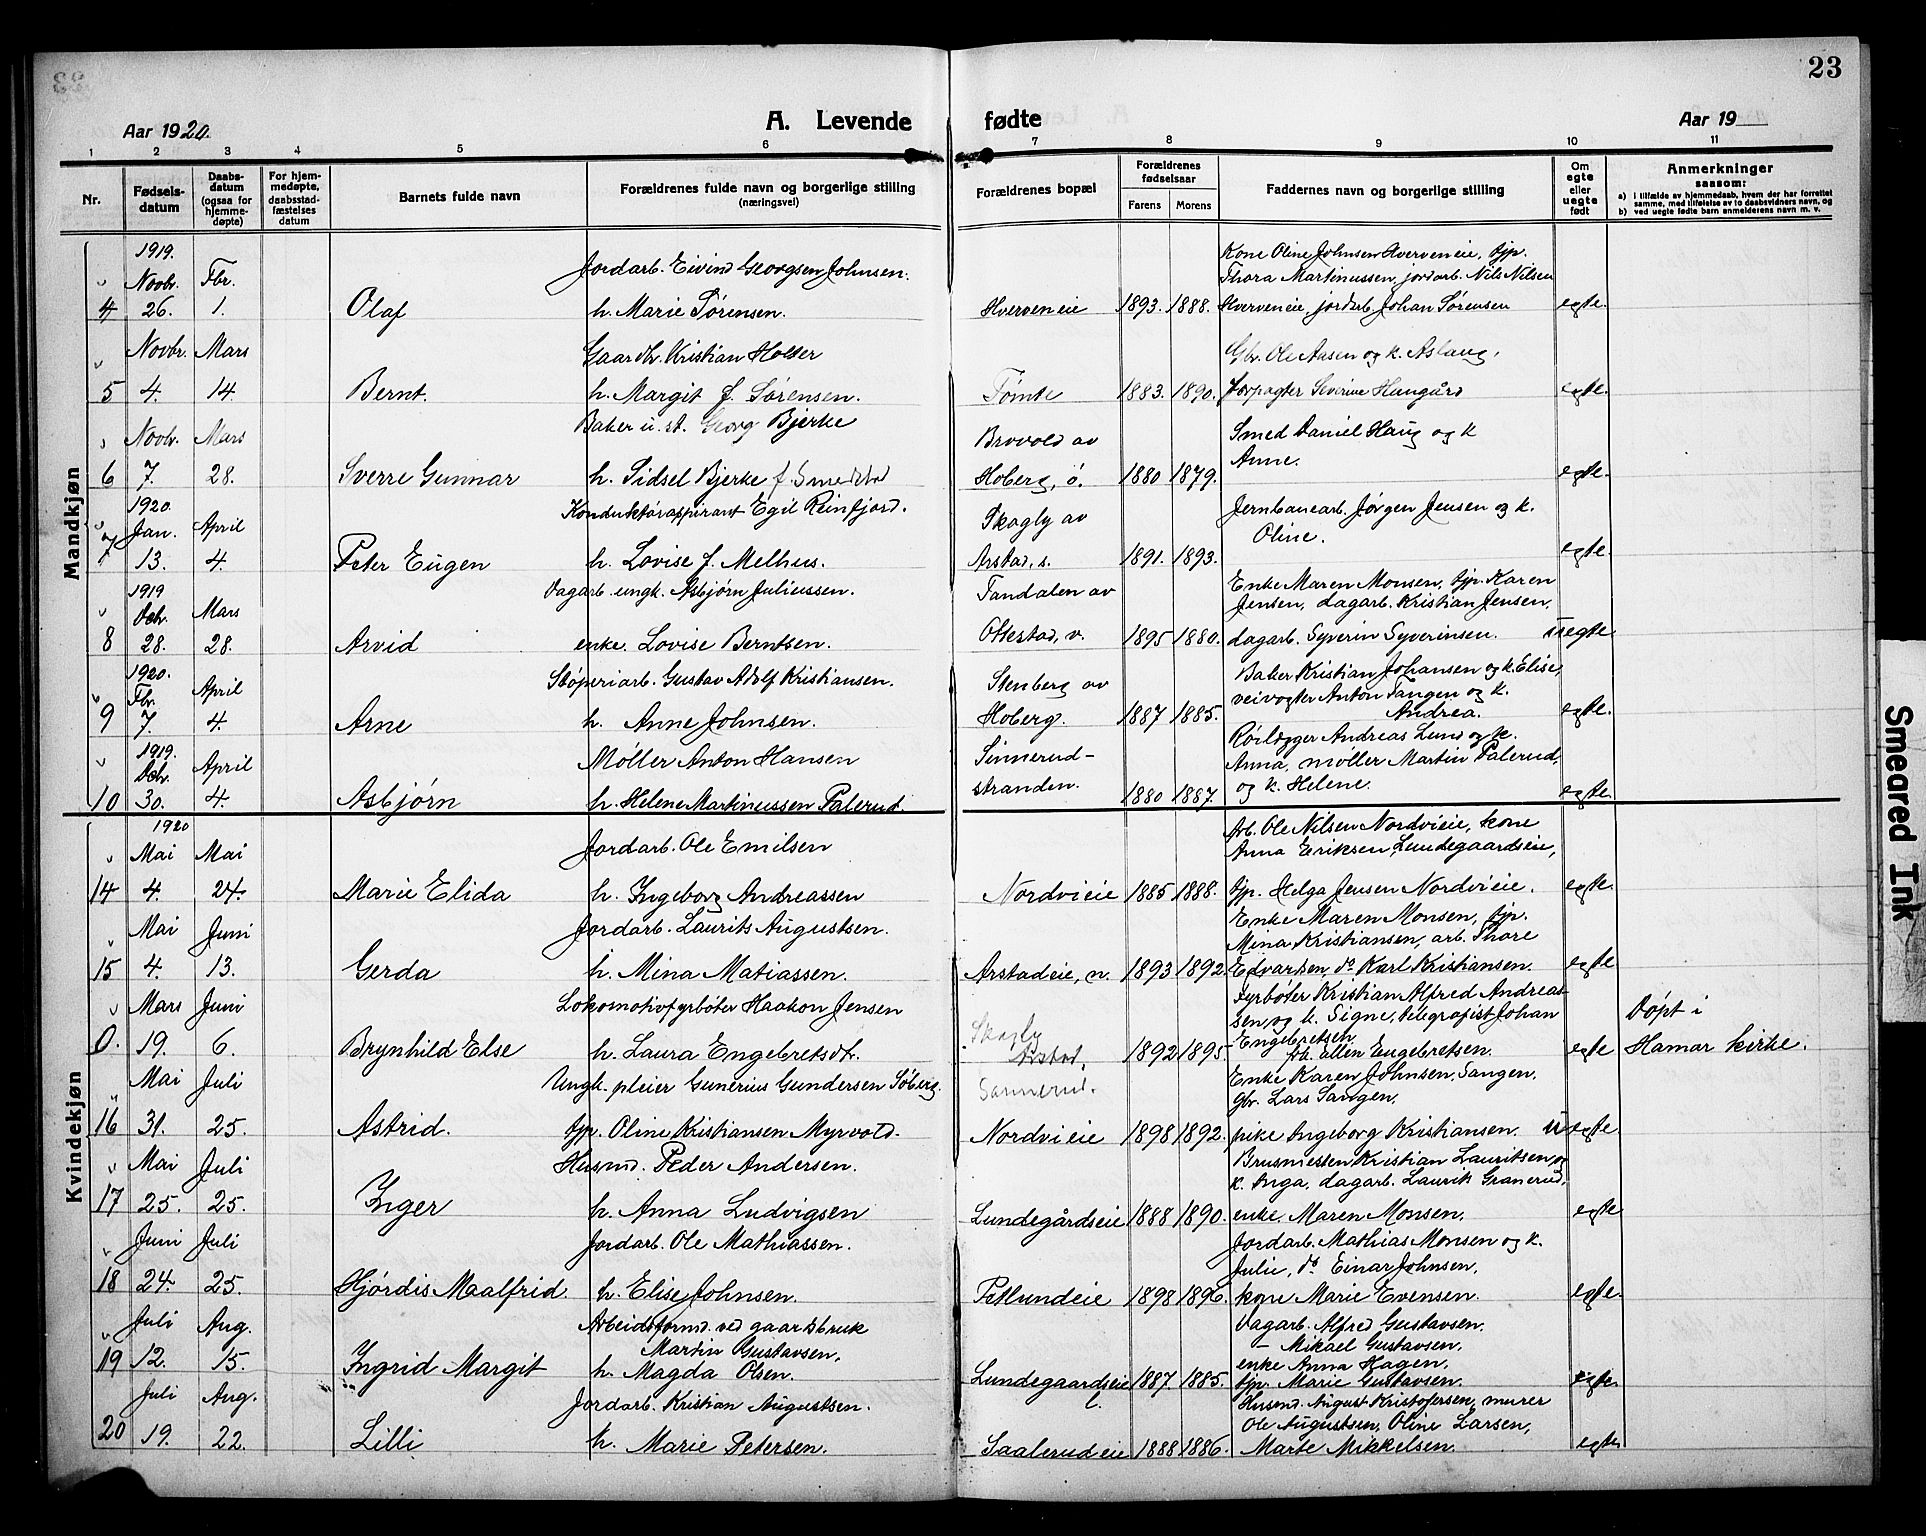 23
Aar 1920.
A. Levende fødte
Aar 19
1 2 3 4 5 6 7 8 9 10 11
Nr.
Fødsels-datum
Daabs-datum (ogsaa for hjemme-døpte)
For hjem-medøpte, daabsstad-fæstelses datum
Barnets fulde navn
Forældrenes fulde navn og borgerlige stilling (næringsvei)
Forældrenes bopæl
Forældrenes fødselsaar
Farens Morens
Faddernes navn og borgerlige stilling
Om egte eller uegte født
Anmerkninger saasom:
a) i tilfælde av hjemmedaab, hvem der har forrettet samme, med tilføielse av to daabsvidners navn, og
b) ved uegte fødte barn anmelderens navn m. v.
Mandkjøn
1919.
Novbr. Fbr. Jordarb. Eivind Georgsen Johnsen. Kone Oline Johnsen Hverveneie, tjp.
Thora Martinussen, jordarb. Nils Nilsen
4 26. 1. Olaf h. Marie Sørensen. Hverveneie 1893. 1888. Hverveneie, jordarb. Johan Sørensen egte.
Novbr. Mars Gaardbr. Kristian Holter Gbr. Ole Aasen og k. Aslaug,
5 4. 14. Bernt. h. Margit f. Sørensen. Tømte 1883. 1890. forpagter Severine Haugård egte.
Novbr. Mars Baker u. st. Georg Bjerke Brovold av Smed Daniel Haug og k
6 7. 28. Sverre Gunnar h. Sidsel Bjerke f. Smedstad Hoberg, ø. 1880 1879. Anne. egte.
1920.
Jan. April Konduktøraspirant Egil Reinfjord. Skogly av Jernbanearb. Jørgen Jensen og k.
7 13. 4. Peter Eugen h. Lovise f. Melhus. Arstad, s. 1891. 1893. Oline. egte.
1919
Dcbr. Mars Dagarb. ungk. Asbjørn Juliussen. Tandalen av Enke Maren Monsen, tjp. Karen
Jensen, dagarb. Kristian Jensen,
8 28. 28. Arvid enke Lovise Berntsen. Ottestad, v. 1895 1880. dagarb. Syverin Syverinsen. uegte.
1920.
Fbr. April Støperiarb. Gustav Adolf Kristiansen. Stenberg av Baker Kristian Johansen og k. Elise,
veivogter Anton Tangen og k.
9 7. 4. Arne h. Anne Johnsen. Hoberg. 1887 1885. Andrea. egte.
1919.
Dcbr. April Møller Anton Hansen Sinnerud- Røilægger Andreas Lund og k.
Anna, møller Martin Palerud,
10 30. 4. Asbjørn h. Helene Martinussen Palerud. stranden. 1880 1887. og k. Helene. egte.
Kvindekjøn
1920
Mai Mai Jordarb. Ole Emilsen Arb. Ole Nilsen Nordvieie, kone
Anna Eriksen, Lundegaardseie,
14 4. 24. Marie Elida h. Ingeborg Andreassen Nordvieie 1885 1888. tjp. Helga Jensen Nordvieie. egte.
Mai Juni Jordarb. Laurits Augustsen. Enke Maren Monsen, tjp.
Mina Kristiansen, arb. Thore
15 4. 13. Gerda h. Mina Matiassen. Arstadeie, n. 1893 1892. Edvardsen, do Karl Kristiansen. egte
Mars Juni Lokomotivfyrbøter Haakon Jensen Skogly Fyrbøter Kristian Alfred Andreas-
sen og k. Signe, telegrafist Johan Døpt i
0. 19. 6. Brynhild Else h. Laura Engebretsdt. Arstad, 1892 1895. Engebretsen, frk. Ellen Engebretsen. egte Hamar kirke.
Mai Juli Ungk. pleier Gunerius Gundersen Søberg, Sannerud. Enke Karen Johnsen, Sangen,
Gbr. Lars Sangen,
16 31. 25. Astrid. tjp. Oline Kristiansen Myrvold. Nordvieie 1898 1892. pike Ingeborg Kristiansen. uegte
Mai Juli Husmd. Peder Andersen. Brusmesten Kristian Lauritsen og
k. Inga, dagarb. Laurik Granerud,
17 25. 25. Inger h. Anna Ludvigsen Lundegårdseie 1888 1890. enke Maren Monsen. egte
Juni Juli Jordarb. Ole Mathiassen. Jordarb. Mathias Monsen og k.
Julie, do Einar Johnsen,
18 24. 25. Hjørdis Maalfrid. h. Elise Johnsen. Petlundeie 1898 1896. kone Marie Evensen. egte.
Juli Aug. Arbeidsformd. ved gaardsbruk Dagarb. Alfred Gustavsen.
Martin Gustavsen, – Mikael Gustavsen,
enke Anna Hagen,
19 12. 15. Ingrid Margit h. Magda Olsen. Lundegaardseie 1887. 1885. tjp. Marie Gustavsen. egte.
Juli Aug. Jordarb. Kristian Augustsen. Husmd. August Kristofersen, murer
Ole Augustsen, Oline Larsen,
20 19. 22. Lilli h. Marie Petersen. Saalerudeie 1888 1886. Marte Mikkelsen. egte
Smeared Ink